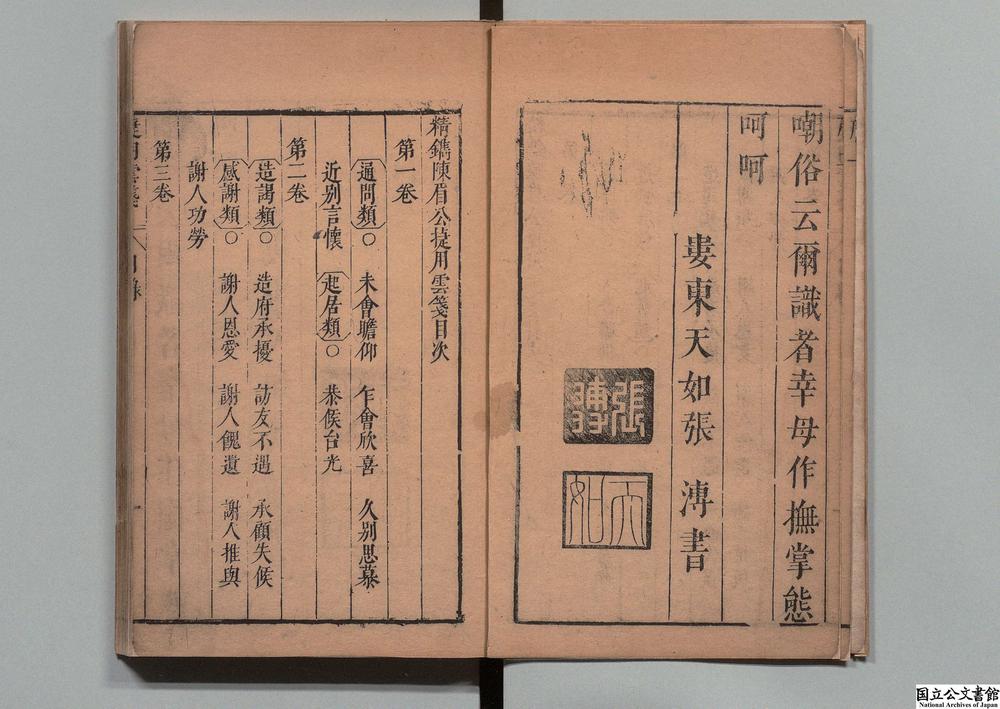 嘲俗云爾識者幸毋作撫掌態
呵呵
婁東天如張溥書
張溥
天如
精鐫陳眉公捷用雲箋目次
第一卷
通問類○ 未會瞻仰 乍會欣喜 久別思慕
近別言懷 起居類○ 恭候台光
第二卷
造謁類○ 造府承擾 訪友不遇 承顧失候
感謝類○ 謝人恩愛 謝人餽遺 謝人推與
謝人功勞
第三卷
国立公文書館
National Archives of Japan